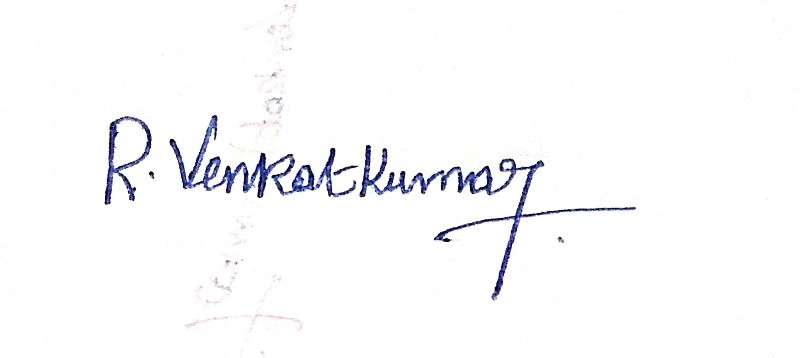 R. Venkatkumar